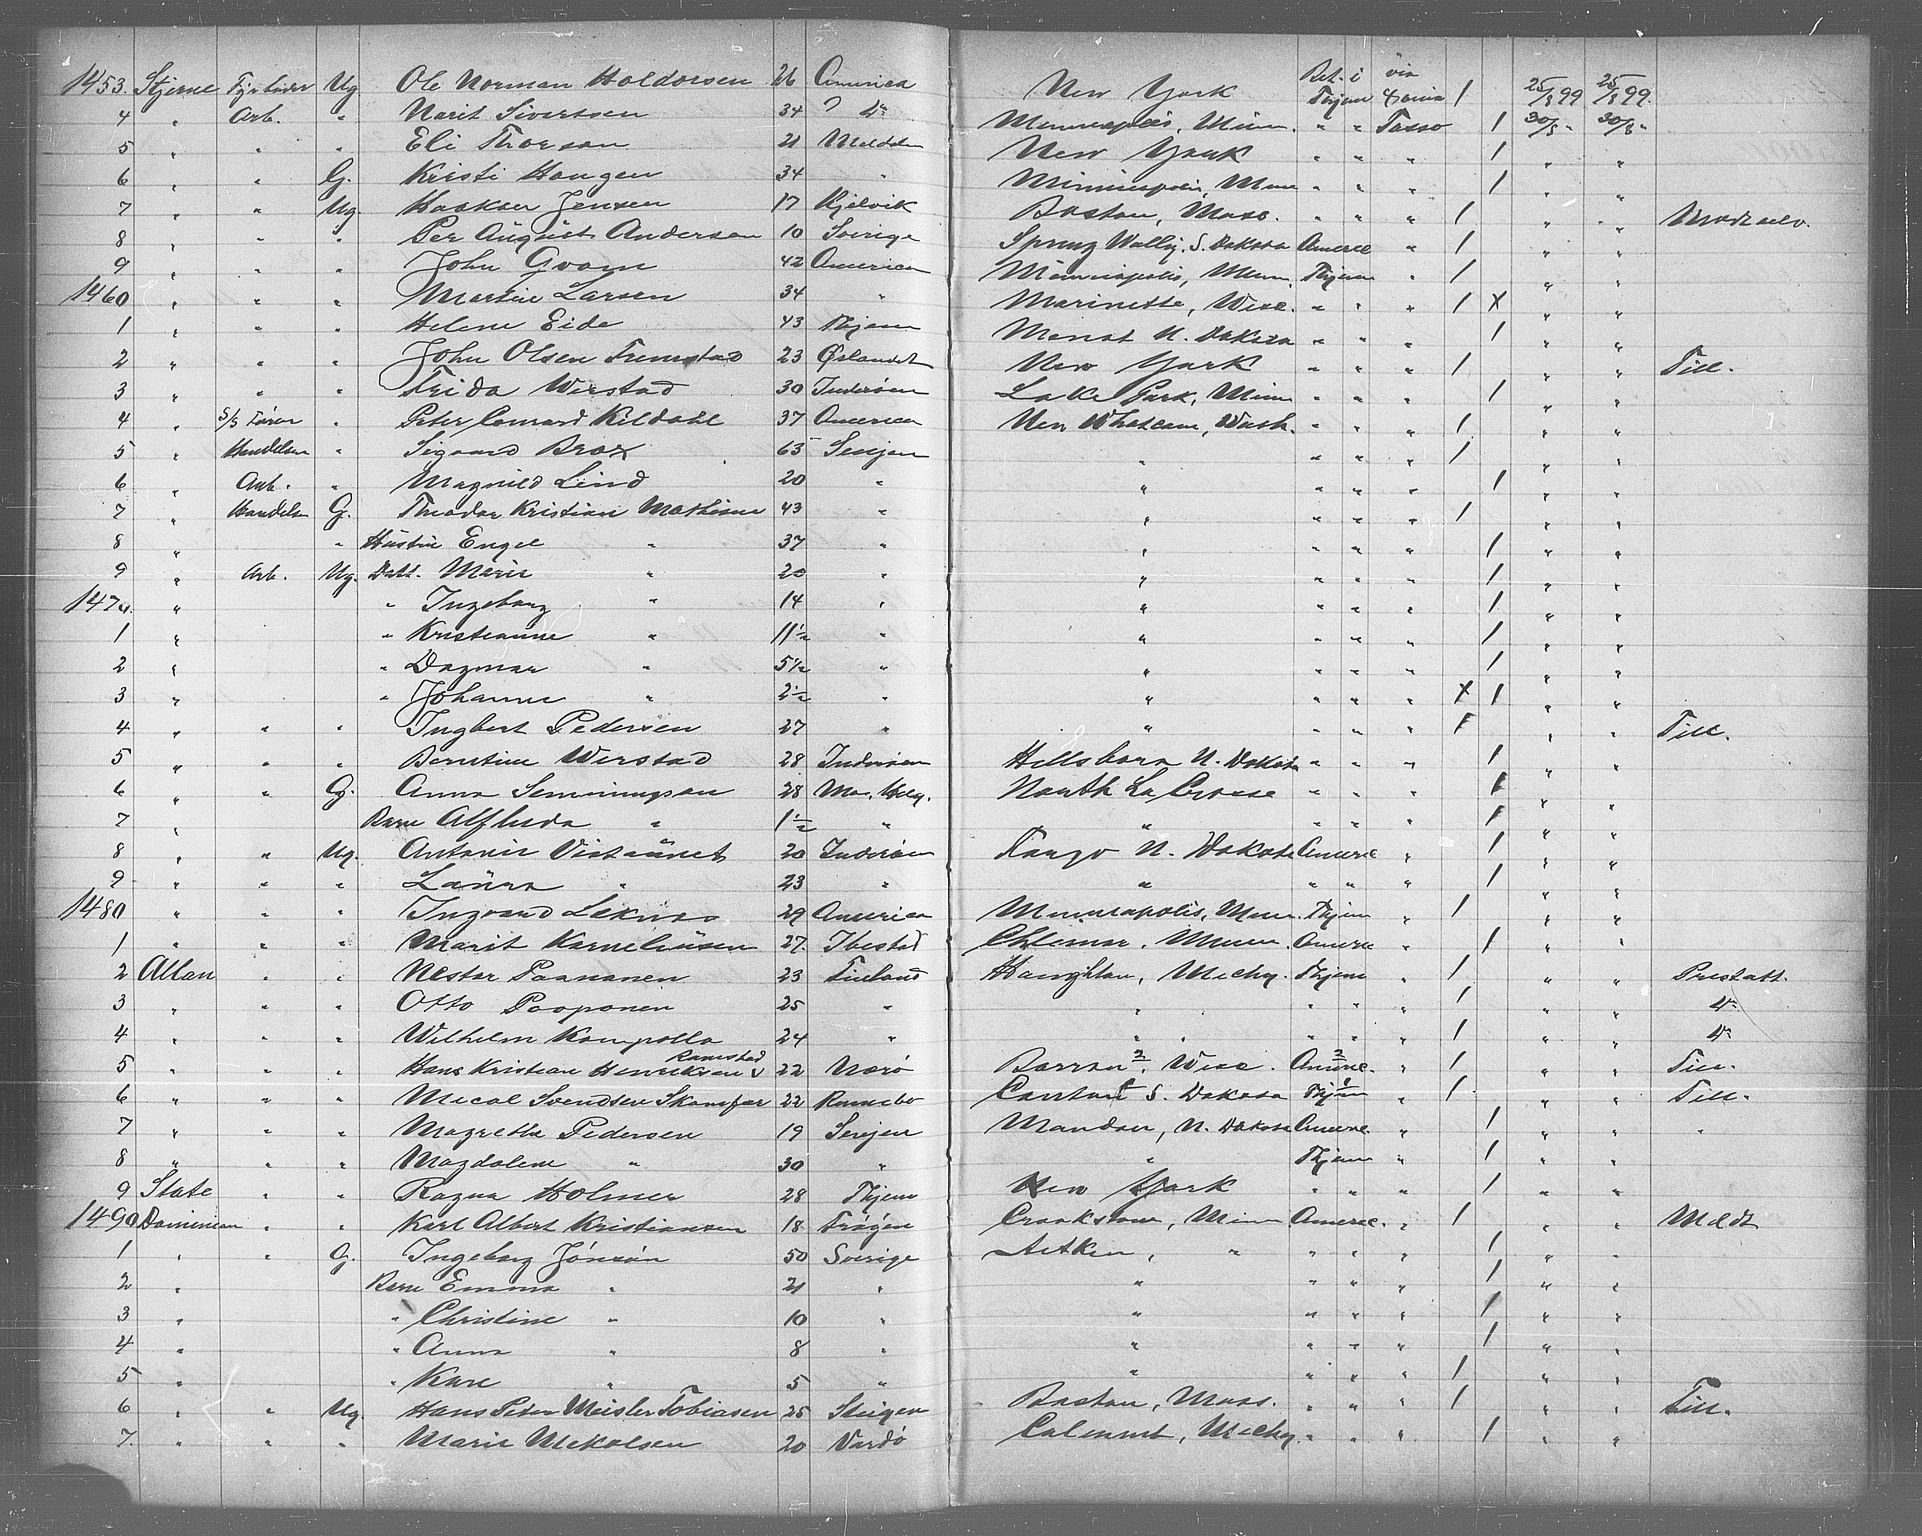 1453. Stjerne Fyrbøder Ug. Ole Norman Haldorsen 26 America New York Bet. i Thjem via Tasso 1 25/8 99 25/8 99.
4 " Arb. " Marit Sivertsen 34 ? do Minneapolis, Minn. " " Tasso 1 30/8 " 30/8 "
5 " " " Eli Thorson 21 Meldalen New York " " " 1 " "
6 " " G. Kristi Haugen 34 " Minneapolis, Minn " " " 1 " "
7 " " Ug. Haakon Jensen 17 Kjelvik Boston, Mass. " " " 1 " "
8 " " " Per August Anderson 10 Sverige Spring Wally. S. Dakota Americ " 1 " "
9 " " " John Gvam 42 America Minneapolis, Minn. Thjem " 1 " "
1460 " " " Martin Larsen 34 " Marinette, Wisc. " " " 1 X " "
1 " " " Helene Eide 43 Thjem Minot N. Dakota " " " 1 " "
2 " " " John Olsen Fremstad 23 Ørlandet New York " " " 1 " " Till.
3 " " " Frida Werstad 30 Inderøen Lake Park, Minn " " " 1 " "
4 " S/S Fører " Peter Conrad Kildahl 37 America New Whatcam, Wash. " " " 1 " "
5 " Handelsm " Sigvard Brox 63 Senjen " " " " 1 " "
6 " Arb. " Magnild Lind 20 " " " " " 1 " "
7 " Handelsm G. Theodor Kristian Mathisen 43 " " " " " 1 " "
8 " " Hustru Engel " 37 " " " " " 1 " "
9 " Arb. Ug. Datt. Marie " 20 " " " " " 1 " "
1470. " " Ingeborg " 14 " " " " " 1 " "
1 " " Kristianne " 11 1/2 " " " " " 1 " "
2 " " Dagmar " 5 1/2 " " " " " 1 " "
3 " " Johanne " 2 1/2 " " " " " X 1 " "
4 " " " Ingbert Pedersen 27 " " " " " 1 " " Till.
5 " " " Berntine Werstad 28 Inderøen Hillsboro N. Dakota " " " 1 " "
6 " " G. Anna Semmingsen 28 Mo, Helg. North La Crosse " " " 1 " "
7 " Barn Alfhida " 1 1/2 " " " " " 1 " "
8 " " Ug. Antonie Vistaunet 20 Inderøen Fargo N. Dakota Americ " 1 " "
9 " " " Laura " 23 " " " " " 1 " "
1480 " " " Ingvard Leknes 29 America Minneapolis, Minn. Thjem " 1 " "
1 " " " Marit Korneliusen 27. Ibestad Minn Americ " 1 " "
2 Allan " " Nestor Paananen 23 Finland Haughton, Michg. Thjem " 1 " " Prestatt.
3 " " " Otto Paoponen 25 " " " " " 1 " " do
4 " " " Wilhelm Kampollo 24 " " " " " 1 " " do
5 " " " Hans Kristian Henriksen Ramstad 22 Nærø Barron, Wisc. Americ. " 1 " " Till.
6 " " " Micol Svendsen Skamfær 22 Rennebo Canton S. Dakota Thjem " 1 " " Till.
7 " " " Magretha Pedersen 19 Senjen Mandan, N. Dakota Americ. " 1 " " "
8 " " " Magdalene " 30 " " Thjem " 1 " "
9 State " " Ragna Holmer 28 Thjem New York " " " 1 " "
1490 Dominion " " Karl Albert Kristiansen 18 Frøyen Crookstone, Minn Americ. " 1 " " Medt
1 " " G. Ingeborg Jönsön 50 Sverige Aitken, " " " " 1 " "
2 " Barn Emma " 21 " " " " " 1 " "
3 " " Christine " 10 " " " " " 1 " "
4 " " Anna " 8 " " " " " 1 " "
5 " " Kare " 5 " " " " " 1 " "
6 " " Ug. Hans Peter Meisler Tobiasen 25 Steigen Boston, Mass. " " " 1 " " Till.
7. " " " Marie Mikalsen 20 Vardø Calumet, Michg. " " " 1 " "